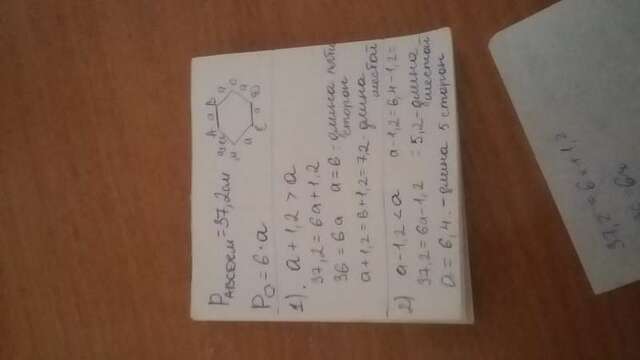 P ABCDEM = 37,2 см
P⬡ = 6·a
A a B
a
a
M
O
a
a
C a D
1). a + 1,2 > a
37,2 = 6a + 1,2
36 = 6a a = 6 - длина пяти
сторон
a + 1,2 = 6 + 1,2 = 7,2 - длина
шестой
2) a - 1,2 < a a - 1,2 = 6,4 - 1,2 =
37,2 = 6a - 1,2 = 5,2 - длина
шестой
a = 6,4. - длина 5 сторон
37,2 = 6x + 1,2
36 = 6x